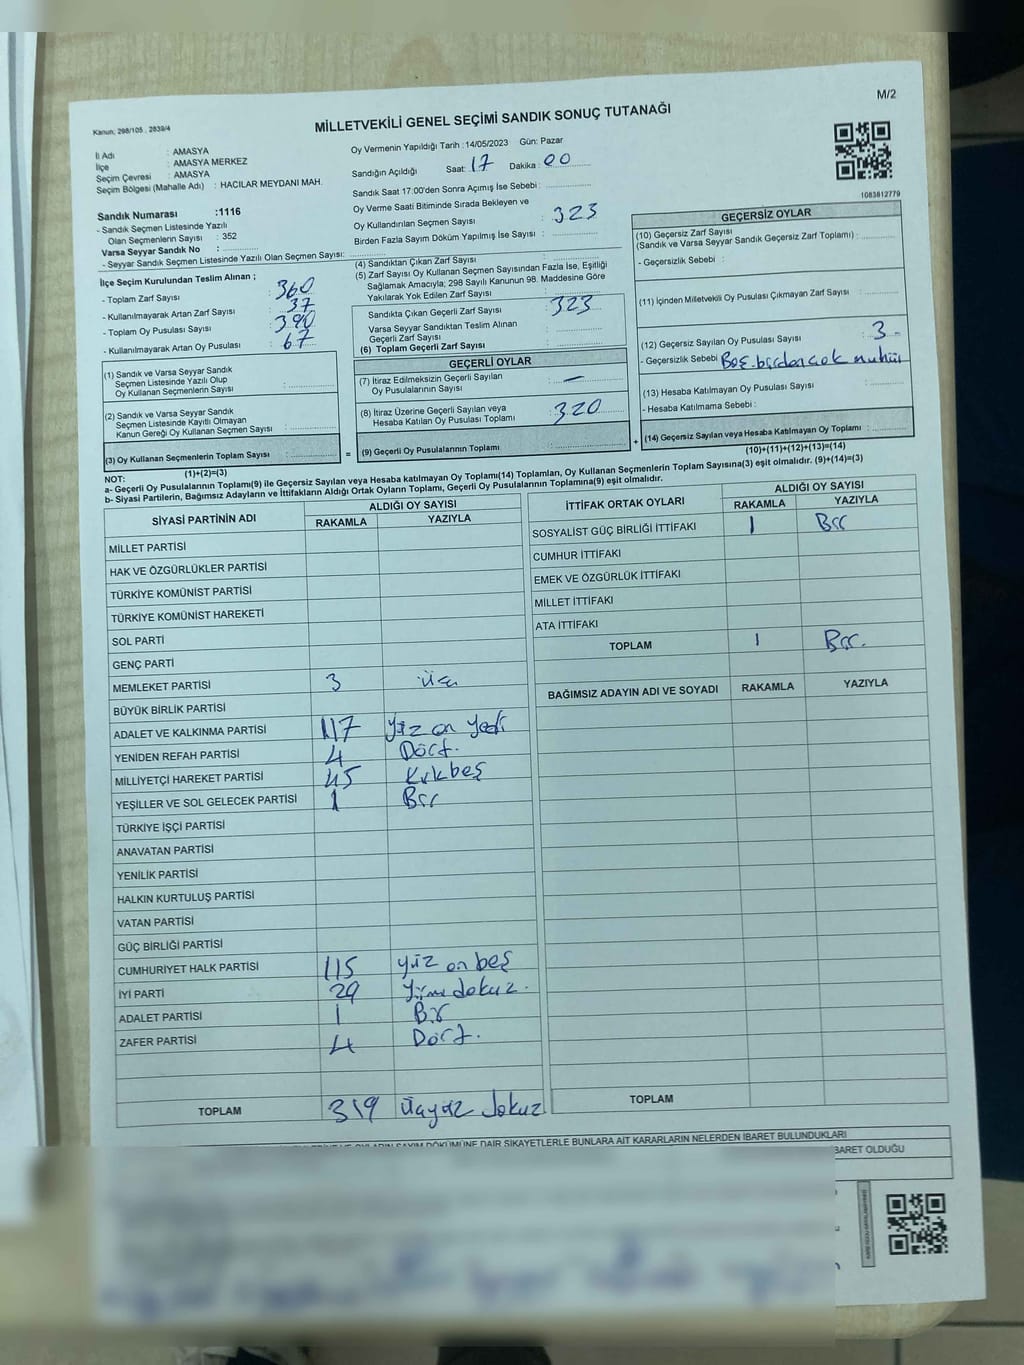 M/2
Kanun; 298/105 , 2839/4
MİLLETVEKİLİ GENEL SEÇİMİ SANDIK SONUÇ TUTANAĞI
İl Adı : AMASYA
İlçe : AMASYA MERKEZ
Seçim Çevresi : AMASYA
Seçim Bölgesi (Mahalle Adı) : HACILAR MEYDANI MAH.
Sandık Numarası :1116
- Sandık Seçmen Listesinde Yazılı
Olan Seçmenlerin Sayısı : 352
Varsa Seyyar Sandık No :
- Seyyar Sandık Seçmen Listesinde Yazılı Olan Seçmen Sayısı:
İlçe Seçim Kurulundan Teslim Alınan ;
- Toplam Zarf Sayısı : 360
- Kullanılmayarak Artan Zarf Sayısı : 37
- Toplam Oy Pusulası Sayısı : 390
- Kullanılmayarak Artan Oy Pusulası : 67
(1) Sandık ve Varsa Seyyar Sandık
Seçmen Listesinde Yazılı Olup
Oy Kullanan Seçmenlerin Sayısı :
(2) Sandık ve Varsa Seyyar Sandık
Seçmen Listesinde Kayıtlı Olmayan
Kanun Gereği Oy Kullanan Seçmen Sayısı :
(3) Oy Kullanan Seçmenlerin Toplam Sayısı :
(1)+(2)=(3)
Oy Vermenin Yapıldığı Tarih : 14/05/2023 Gün: Pazar
Sandığın Açıldığı Saat: 17 Dakika : 00
Sandık Saat 17:00'den Sonra Açımış İse Sebebi :
Oy Verme Saati Bitiminde Sırada Bekleyen ve
Oy Kullandırılan Seçmen Sayısı : 323
Birden Fazla Sayım Döküm Yapılmış İse Sayısı :
(4) Sandıktan Çıkan Zarf Sayısı
(5) Zarf Sayısı Oy Kullanan Seçmen Sayısından Fazla İse, Eşitliği
Sağlamak Amacıyla; 298 Sayılı Kanunun 98. Maddesine Göre
Yakılarak Yok Edilen Zarf Sayısı :
Sandıkta Çıkan Geçerli Zarf Sayısı : 323
Varsa Seyyar Sandıktan Teslim Alınan
Geçerli Zarf Sayısı :
(6) Toplam Geçerli Zarf Sayısı :
GEÇERLİ OYLAR
(7) İtiraz Edilmeksizin Geçerli Sayılan
Oy Pusulalarının Sayısı : —
(8) İtiraz Üzerine Geçerli Sayılan veya
Hesaba Katılan Oy Pusulası Toplamı : 320
= (9) Geçerli Oy Pusulalarının Toplamı : +
1083812779
GEÇERSİZ OYLAR
(10) Geçersiz Zarf Sayısı
(Sandık ve Varsa Seyyar Sandık Geçersiz Zarf Toplamı) :
- Geçersizlik Sebebi :
(11) İçinden Milletvekili Oy Pusulası Çıkmayan Zarf Sayısı :
(12) Geçersiz Sayılan Oy Pusulası Sayısı : 3 -
- Geçersizlik Sebebi Boş. birden çok muhür
(13) Hesaba Katılmayan Oy Pusulası Sayısı :
- Hesaba Katılmama Sebebi :
(14) Geçersiz Sayılan veya Hesaba Katılmayan Oy Toplamı :
(10)+(11)+(12)+(13)=(14)
NOT:
a- Geçerli Oy Pusulalarının Toplamı(9) ile Geçersiz Sayılan veya Hesaba katılmayan Oy Toplamı(14) Toplamları, Oy Kullanan Seçmenlerin Toplam Sayısına(3) eşit olmalıdır. (9)+(14)=(3)
b- Siyasi Partilerin, Bağımsız Adayların ve İttifakların Aldığı Ortak Oyların Toplamı, Geçerli Oy Pusulalarının Toplamına(9) eşit olmalıdır.
SİYASİ PARTİNİN ADI ALDIĞI OY SAYISI
RAKAMLA YAZIYLA
MİLLET PARTİSİ
HAK VE ÖZGÜRLÜKLER PARTİSİ
TÜRKİYE KOMÜNİST PARTİSİ
TÜRKİYE KOMÜNİST HAREKETİ
SOL PARTİ
GENÇ PARTİ
MEMLEKET PARTİSİ 3 Üç
BÜYÜK BİRLİK PARTİSİ
ADALET VE KALKINMA PARTİSİ 117 yüz on yedi
YENİDEN REFAH PARTİSİ 4 Dört.
MİLLİYETÇİ HAREKET PARTİSİ 45 Kırkbeş
YEŞİLLER VE SOL GELECEK PARTİSİ 1 Bir
TÜRKİYE İŞÇİ PARTİSİ
ANAVATAN PARTİSİ
YENİLİK PARTİSİ
HALKIN KURTULUŞ PARTİSİ
VATAN PARTİSİ
GÜÇ BİRLİĞİ PARTİSİ
CUMHURİYET HALK PARTİSİ 115 yüz on beş
İYİ PARTİ 29 Yirmi dokuz.
ADALET PARTİSİ 1 Bir
ZAFER PARTİSİ 4 Dört.
TOPLAM 319 Üçyüz dokuz
İTTİFAK ORTAK OYLARI ALDIĞI OY SAYISI
RAKAMLA YAZIYLA
SOSYALİST GÜÇ BİRLİĞİ İTTİFAKI 1 Bir
CUMHUR İTTİFAKI
EMEK VE ÖZGÜRLÜK İTTİFAKI
MİLLET İTTİFAKI
ATA İTTİFAKI
TOPLAM 1 Bir.
BAĞIMSIZ ADAYIN ADI VE SOYADI RAKAMLA YAZIYLA
TOPLAM
OYLARIN SAYIM DÖKÜMÜNE DAİR ŞİKAYETLERLE BUNLARA AİT KARARLARIN NELERDEN İBARET BULUNDUKLARI
İBARET OLDUĞU